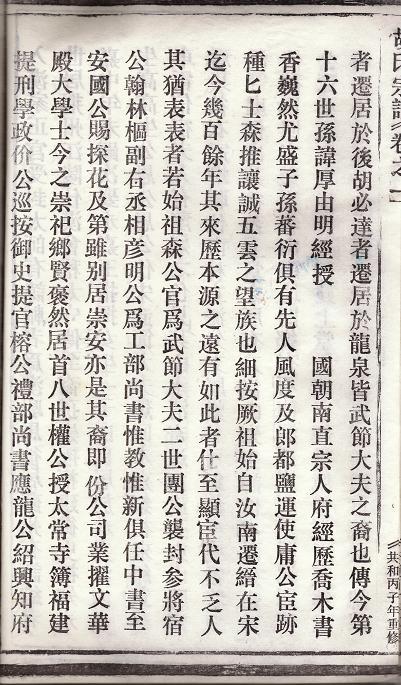 胡氏宗譜卷之一
者遷居於後胡必達者遷居於龍泉皆武節大夫之裔也傳今第
十六世孫諱厚由明經授 國朝南直宗人府經歷喬木書
香巍然尤盛子孫蕃衍俱有先人風度及郎都鹽運使庸公宦跡
種匕士森推讓誠五雲之望族也細按厥祖始自汝南遷縉在宋
迄今幾百餘年其來歷本源之遠有如此者仕至顯宦代不乏人
其猶表表者若始祖森公官爲武節大夫二世團公襲封參將宿
公翰林樞副右丞相彦明公爲工部尚書惟教惟新俱任中書至
安國公賜探花及第雖别居崇安亦是其裔即份公司業擢文華
殿大學士今之崇祀鄉賢褒然居首八世權公授太常寺簿福建
提刑學政价公巡按御史提官榕公禮部尚書應龍公紹興知府
共和丙子年重修